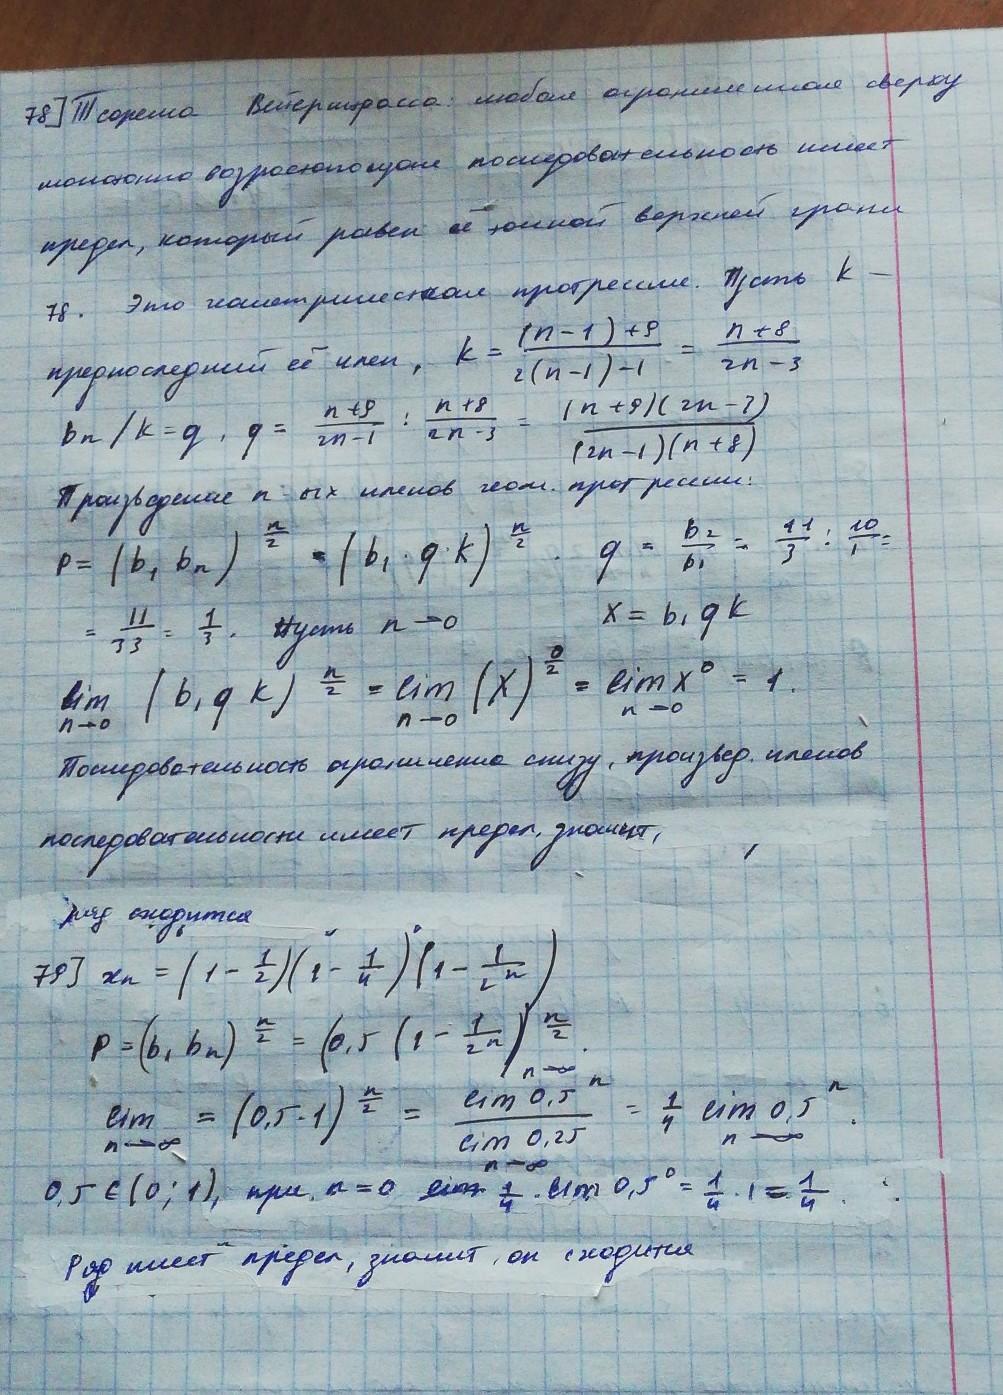 78] Теорема Вейерштрасса: любая ограниченная сверху
монотонно возрастающая последовательность имеет
предел, который равен её точной верхней грани
78. Это геометрическая прогрессия. Пусть k –
предпоследний её член, k = ((n-1)+9)/(2(n-1)-1) = (n+8)/(2n-3)
bn/k = q, q = (n+9)/(2n-1) : (n+8)/(2n-3) = ((n+9)(2n-3))/((2n-1)(n+8))
Произведение n-ых членов геом. прогрессии:
P = (b₁ bn)^(n/2) = (b₁ · q · k)^(n/2). q = b₂/b₁ = 11/3 : 10/1 =
= 11/33 = 1/3. Пусть n→0 X = b₁ q k
lim n→0 (b₁ q k)^(n/2) = lim n→0 (X)^(0/2) = lim n→0 X⁰ = 1.
Последовательность ограничена снизу, произвед. членов
последовательности имеет предел, значит,
ряд сходится
79] xn = (1 - 1/2)(1 - 1/4)(1 - 1/2ⁿ)
P = (b₁ bn)^(n/2) = (0,5 (1 - 1/2ⁿ))^(n/2) n→∞.
lim n→∞ = (0,5·1)^(n/2) = lim 0,5ⁿ / lim 0,25 n→∞ = 1/4 lim n→∞ 0,5ⁿ.
0,5 ∈ (0; 1), при n = 0 1/4 · lim 0,5⁰ = 1/4 · 1 = 1/4.
Ряд имеет предел, значит, он сходится